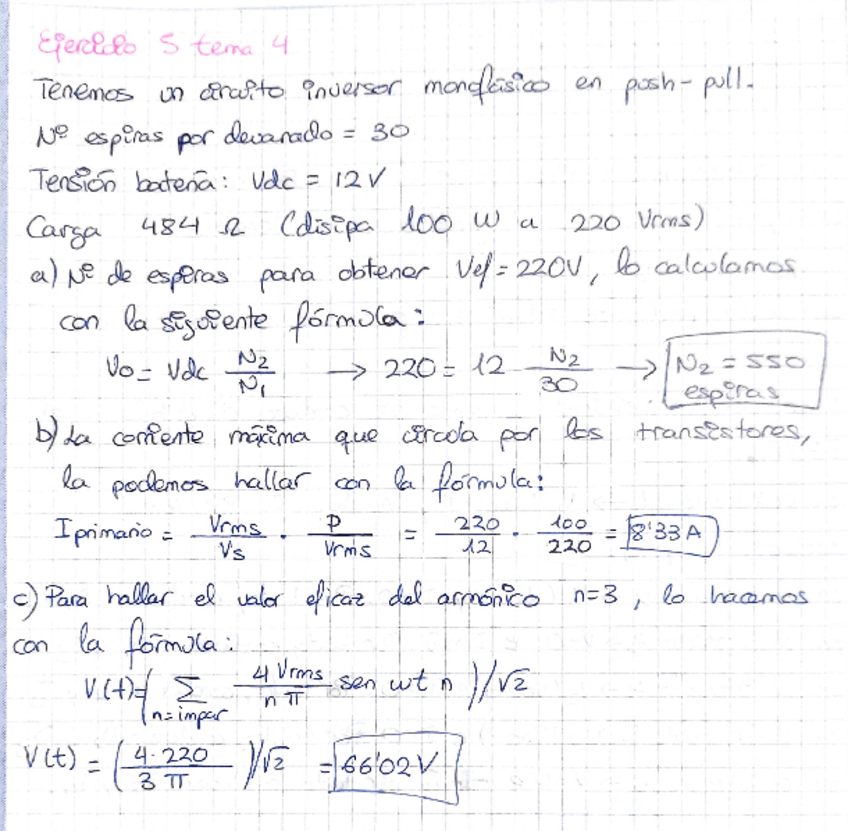 Ejercicio 5 tema 4
Tenemos un circuito inversor monofásico en push-pull.
Nº espiras por devanado = 30
Tensión batería: Vdc = 12 V
Carga 484 Ω (disipa 100 W a 220 Vrms)
a) Nº de espiras para obtener Vef = 220V, lo calculamos
con la siguiente fórmula:
Vo = Vdc N2/N1 → 220 = 12 N2/30 → N2 = 550 espiras
b) La corriente máxima que circula por los transistores,
la podemos hallar con la fórmula:
I primario = Vrms/Vs · P/Vrms = 220/12 · 100/220 = 8'33 A
c) Para hallar el valor eficaz del armónico n=3, lo hacemos
con la fórmula:
V(t)=(∑ n=impar 4 Vrms/n π sen wt n)/√2
V(t) = (4·220/3 π)/√2 = 66'02 V